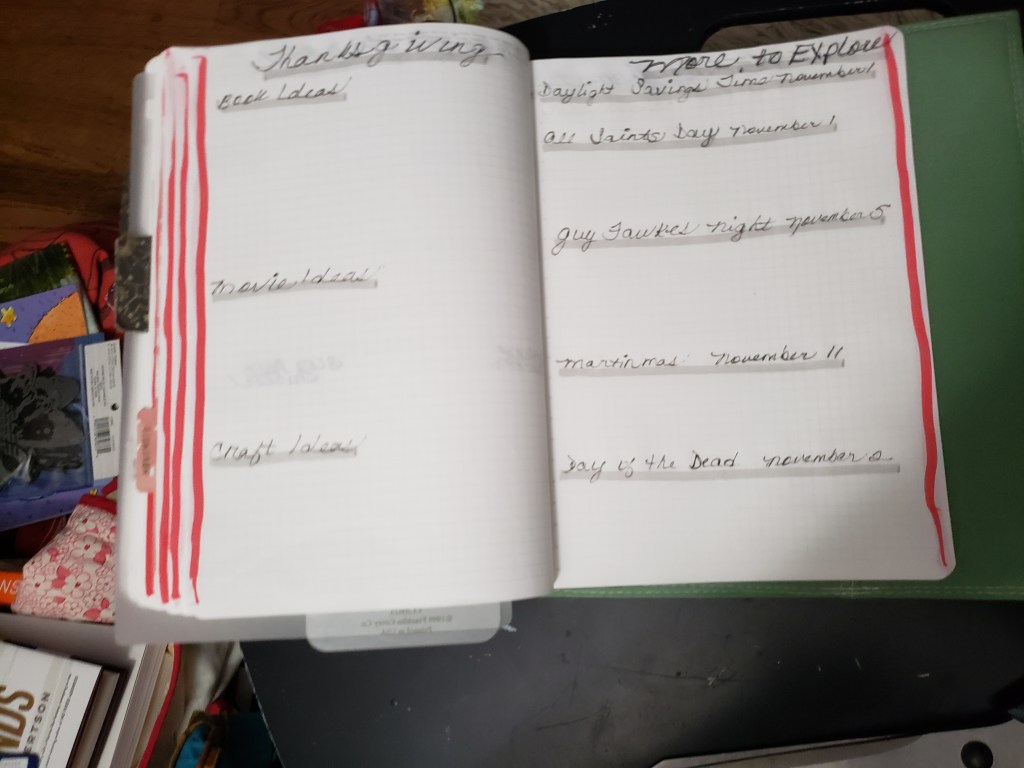 Thanksgiving
Book Ideas
Movie Ideas
Craft Ideas
More to Explore
Daylight Savings Time November 1
All Saints Day November 1
Guy Fawkes Night November 5
Martinmas November 11
Day of the Dead November 2
NDS
ERTSON